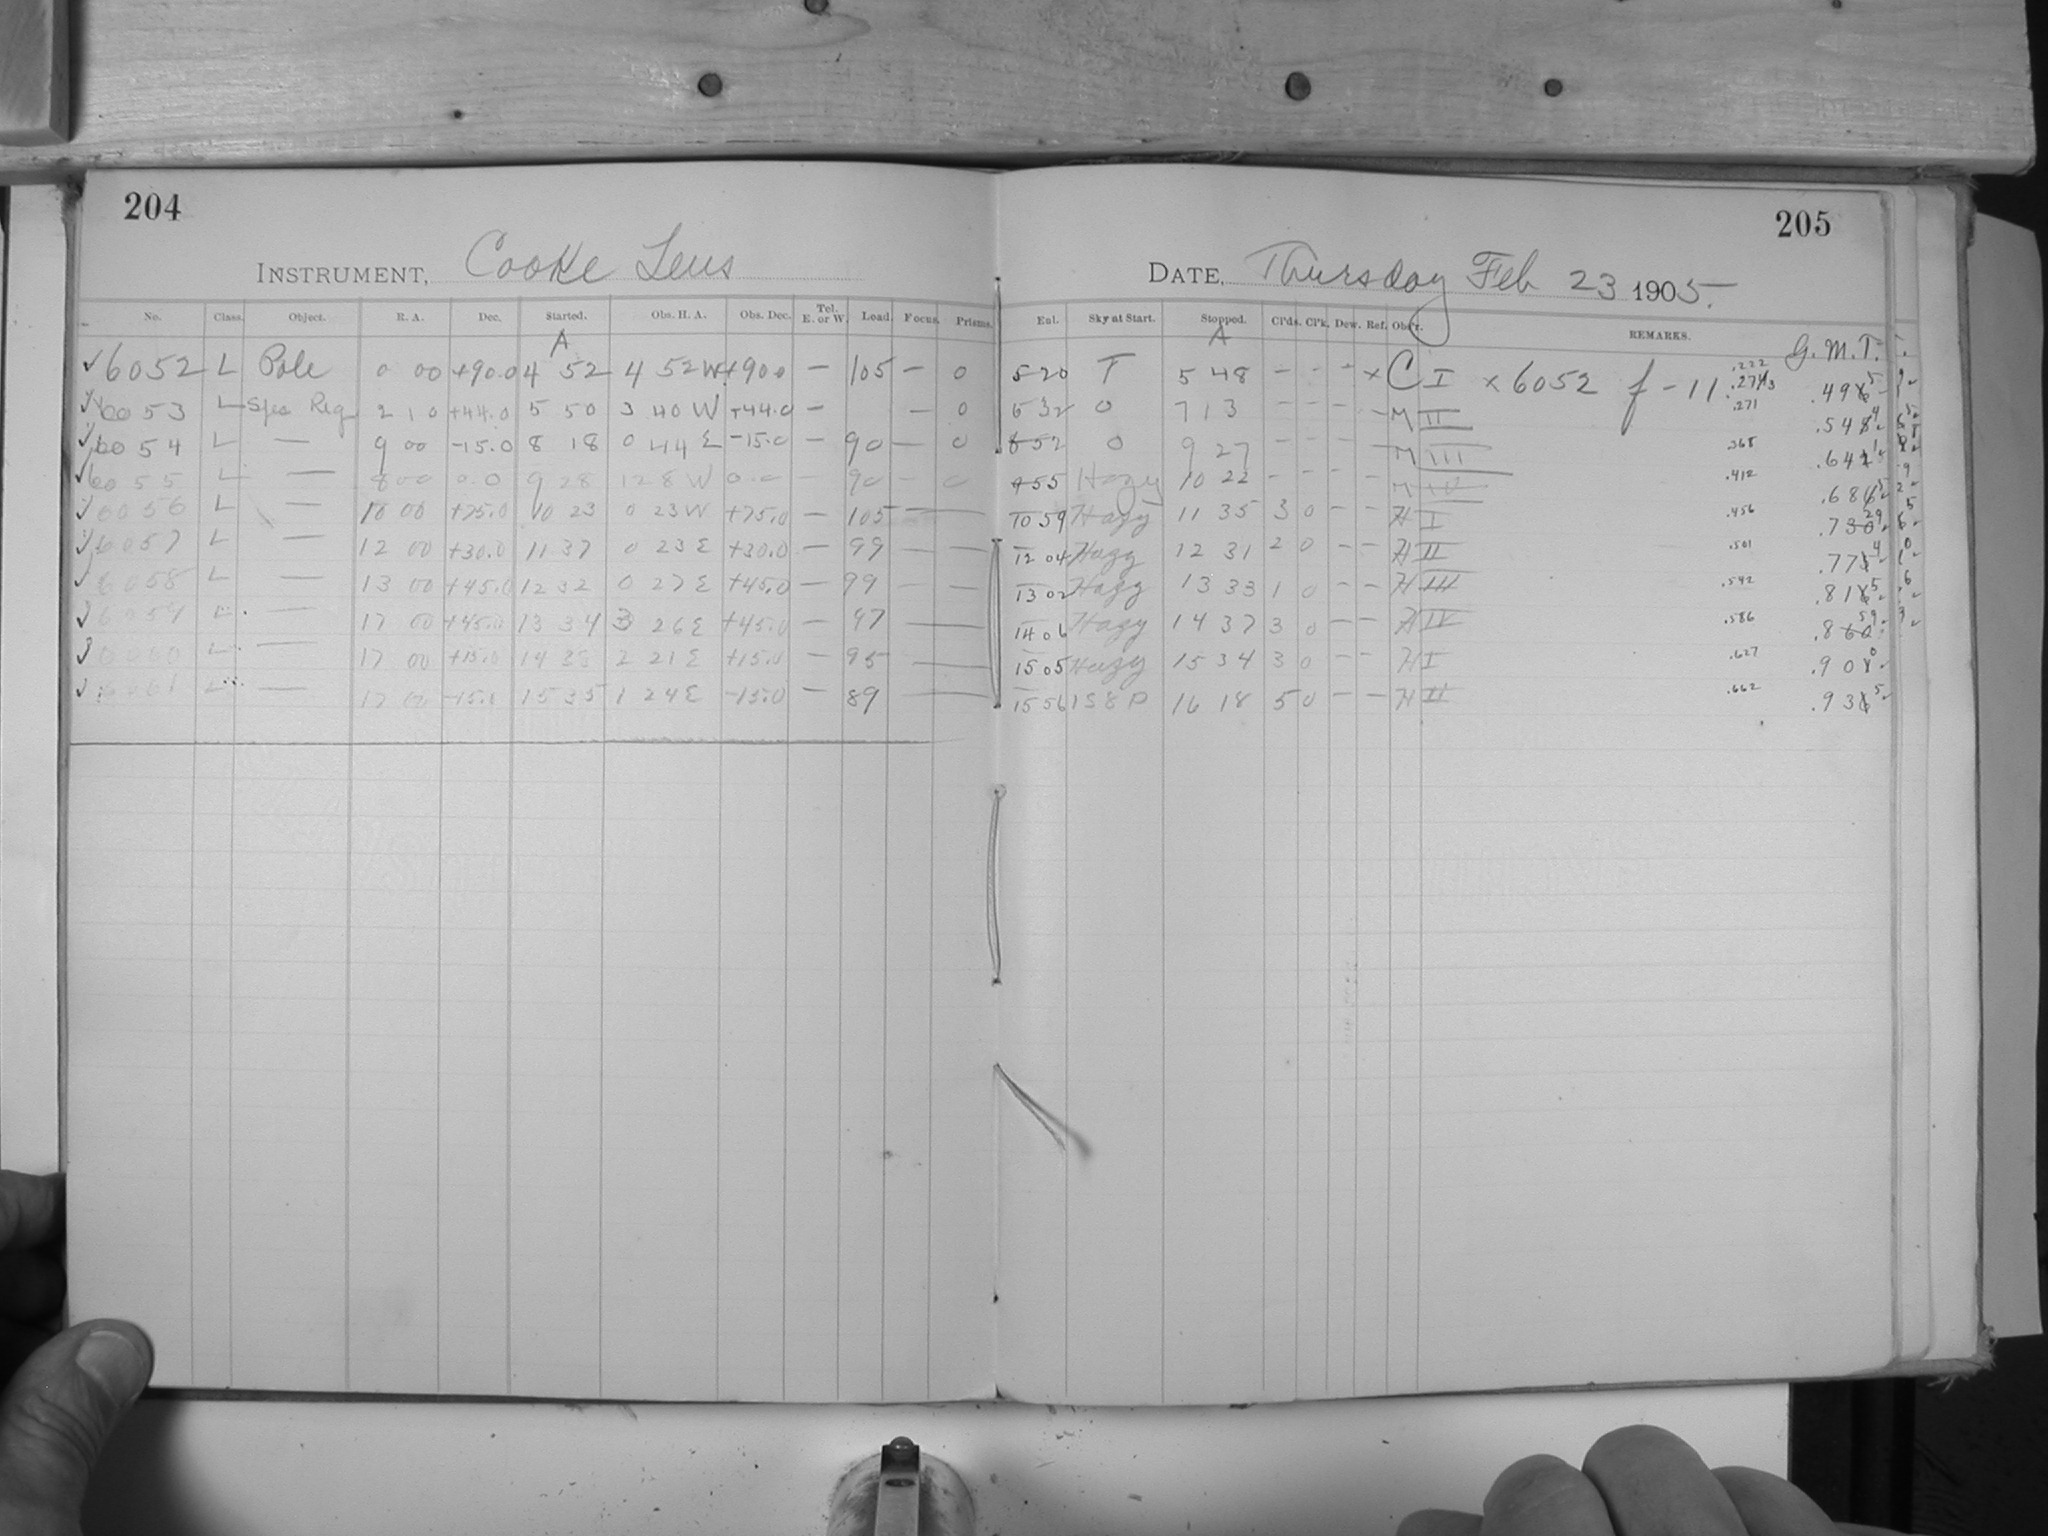 204
205
INSTRUMENT, Cooke Lens
DATE, Thursday Feb 23 1905.
No. Class. Object. R. A. Dec. Started. Obs. H. A. Obs. Dec. Tel. E. or W. Load. Focus. Prisms. Eul. Sky at Start. Stopped. Cl'ds. Cl'k. Dew. Ref. Obs'r. REMARKS. G. M. T.
A A
6052 L Pole 0 00 +90.0 4 52 4 52 W +90.0 — 105 — 0 5 20 T 5 48 - - - × C I × 6052 f - 11 .222
6053 L Spec Reg 2 10 +44.0 5 50 3 40 W +44.0 — — 0 6 32 0 7 13 - - - - M II .271
6054 L — 9 00 -15.0 8 18 0 44 E -15.0 — 90 — 0 8 52 0 9 27 - - - - M III .368
6055 L — 8 00 0.0 9 28 1 28 W 0.0 — 90 — 0 9 55 Hazy 10 22 - - - - M IV .412
6056 L — 10 00 +75.0 10 23 0 23 W +75.0 — 105 — — 10 59 Hazy 11 35 3 0 - - H I .456
6057 L — 12 00 +30.0 11 37 0 23 E +30.0 — 99 — — 12 04 Hazy 12 31 2 0 - - H II .501
6058 L — 13 00 +45.0 12 32 0 27 E +45.0 — 99 — — 13 02 Hazy 13 33 1 0 - - H III .542
6059 L — 17 00 +45.0 13 34 3 26 E +45.0 — 97 — — 14 06 Hazy 14 37 3 0 - - H IV .586
6060 L — 17 00 +15.0 14 38 2 21 E +15.0 — 95 — — 15 05 Hazy 15 34 3 0 - - H I .627
6061 L — 17 00 -15.0 15 35 1 24 E -15.0 — 89 — — 15 56 IS8P 16 18 5 0 - - H II .662